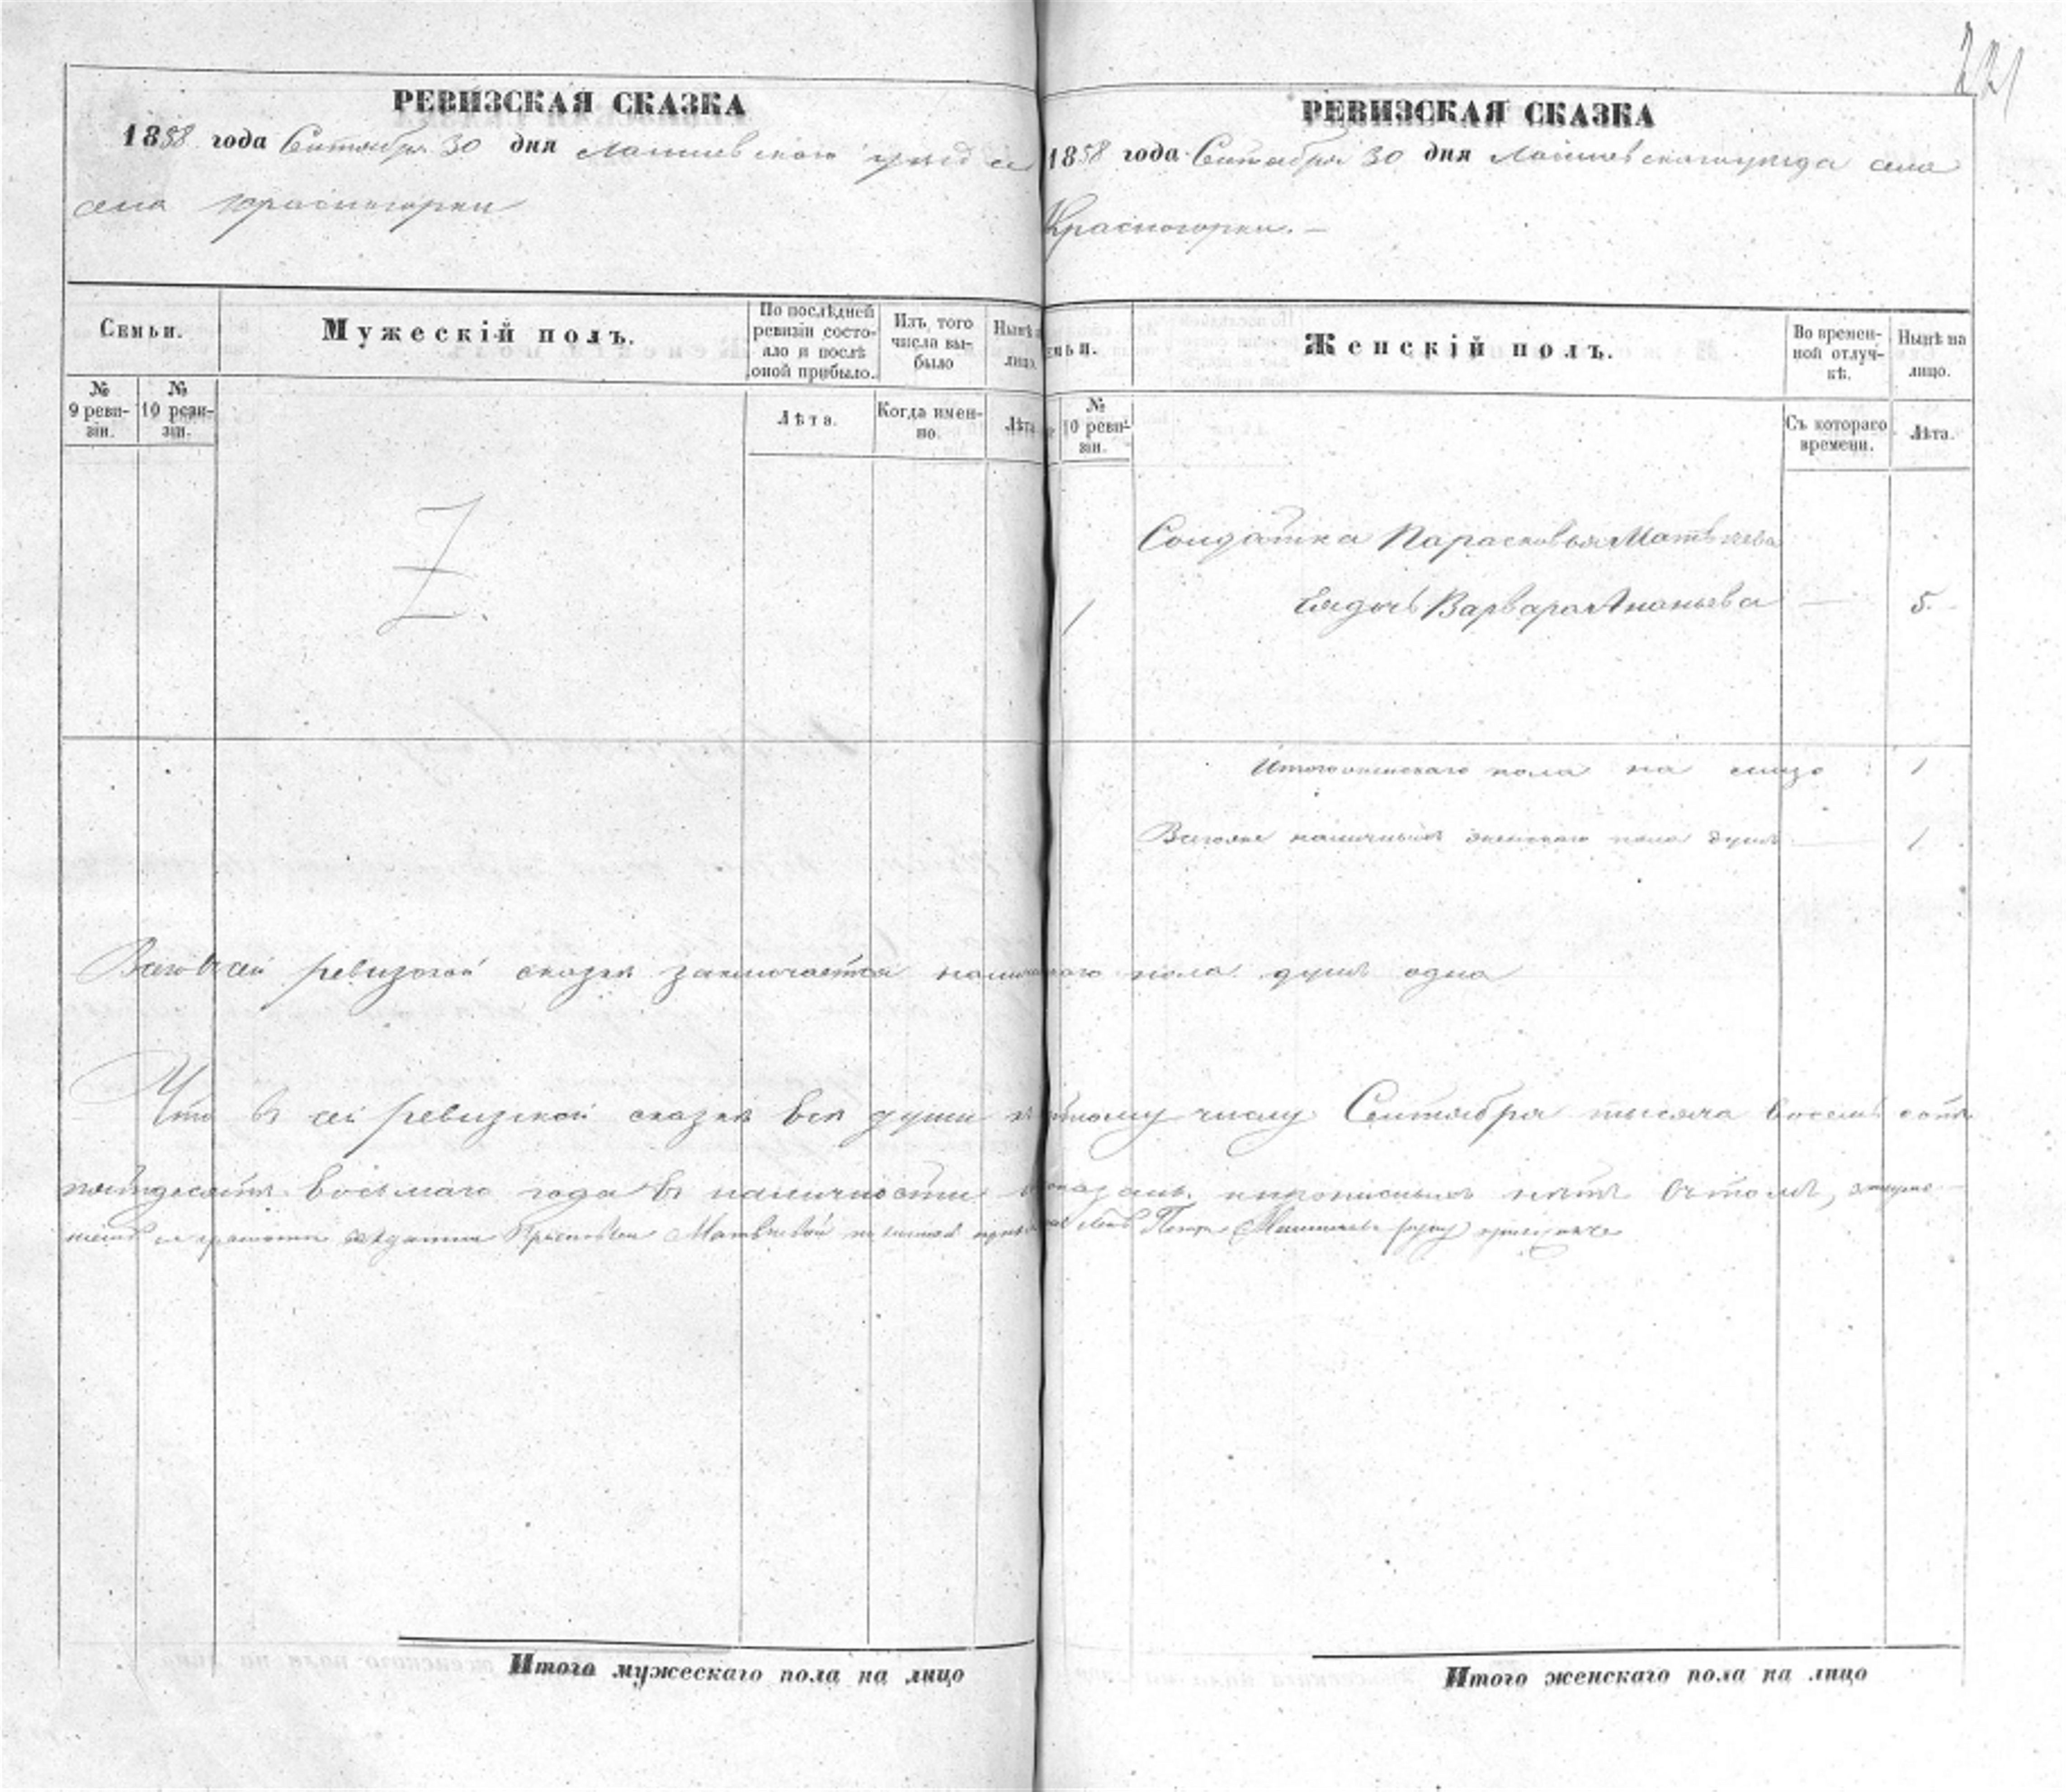 221
РЕВИЗСКАЯ СКАЗКА
1858 года Сентября 30 дня Лаишевского уезда
села Красногорки
Семьи.
Мужескій полъ.
По послѣдней ревизіи состояло и послѣ оной прибыло.
Изъ того числа выбыло
Нынѣ
лицо.
№ 9 ревизіи.
№ 10 ревизіи.
Лѣта.
Когда именно.
Лѣта
Z.
РЕВИЗСКАЯ СКАЗКА
1858 года Сентября 30 дня Лаишевскаго уезда села
Красногорки. —
мьи.
Женскій полъ.
Во временной отлучкѣ.
Нынѣ на лицо.
№ 10 ревизіи.
Съ котораго времени.
Лѣта.
Солдатка Парасковья Матвѣева
1 Ея дочь Варвара Ананьева — 5.
Итого женскаго пола на лицо 1
Всего наличныхъ женскаго пола душъ — 1
Всего в сей ревизской сказке заключается пола душъ одна
Что в сей ревизской сказке все души к числу Сентября тысяча восемь сотъ
пятьдесятъ восьмаго года в наличности
Матвѣевой Петръ
Итого мужескаго пола на лицо
Итого женскаго пола на лицо